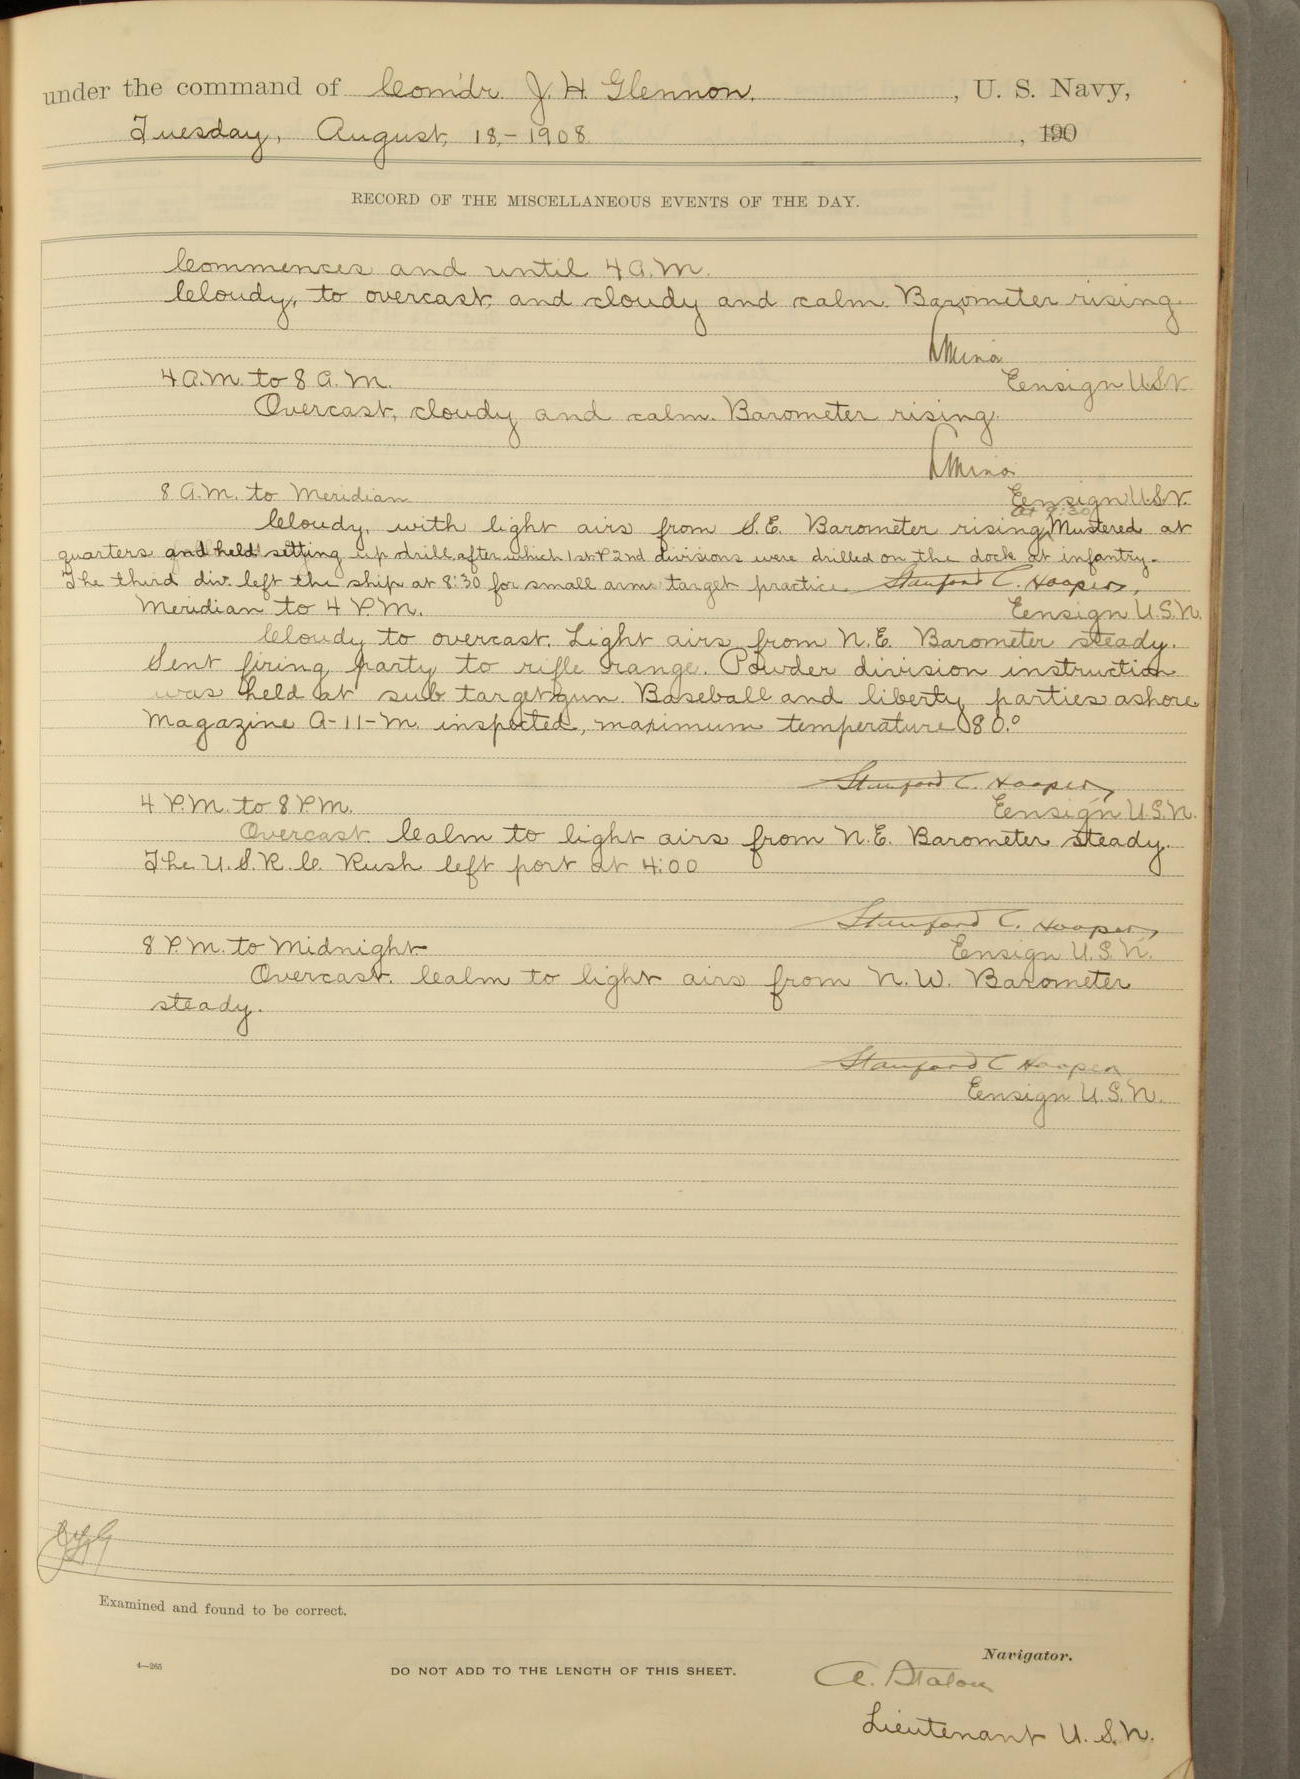 under the command of Com'dr. J. H. Glennon, U. S. Navy,
Tuesday, August, 18,-1908 , 190
RECORD OF THE MISCELLANEOUS EVENTS OF THE DAY.
Commences and until 4 A.M.
Cloudy, to overcast, and cloudy and calm. Barometer rising.
4 A.M. to 8 A.M.
Eensign U.S.N.
Overcast, cloudy and calm. Barometer rising.
8 A.M. to Meridian
Eensign U.S.N.
At 9:30
Cloudy, with light airs from S.E. Barometer rising. Mustered at
quarters and held setting up drill, after which 1st & 2nd divisions were drilled on the dock at infantry.
The third div. left the ship at 8:30 for small arms target practice. Stanford C. Hooper,
Meridian to 4 P.M. Eensign U.S.N.
Cloudy to overcast. Light airs from N.E. Barometer steady.
Sent firing party to rifle range. Powder division instruction
was held at sub target gun. Baseball and liberty parties ashore
Magazine A-11-M. inspected, maximum temperature 80.°
Stanford C. Hooper,
4 P.M. to 8 P.M. Eensign U.S.N.
Overcast. Calm to light airs from N.E. Barometer steady.
The U.S.R.C. Rush left port at 4:00
Stanford C. Hooper,
8 P.M. to Midnight Eensign U.S.N.
Overcast. Calm to light airs from N.W. Barometer
steady.
Stanford C Hooper
Eensign U.S.N.
Examined and found to be correct.
Navigator.
4—265
DO NOT ADD TO THE LENGTH OF THIS SHEET.
Lieutenant U.S.N.